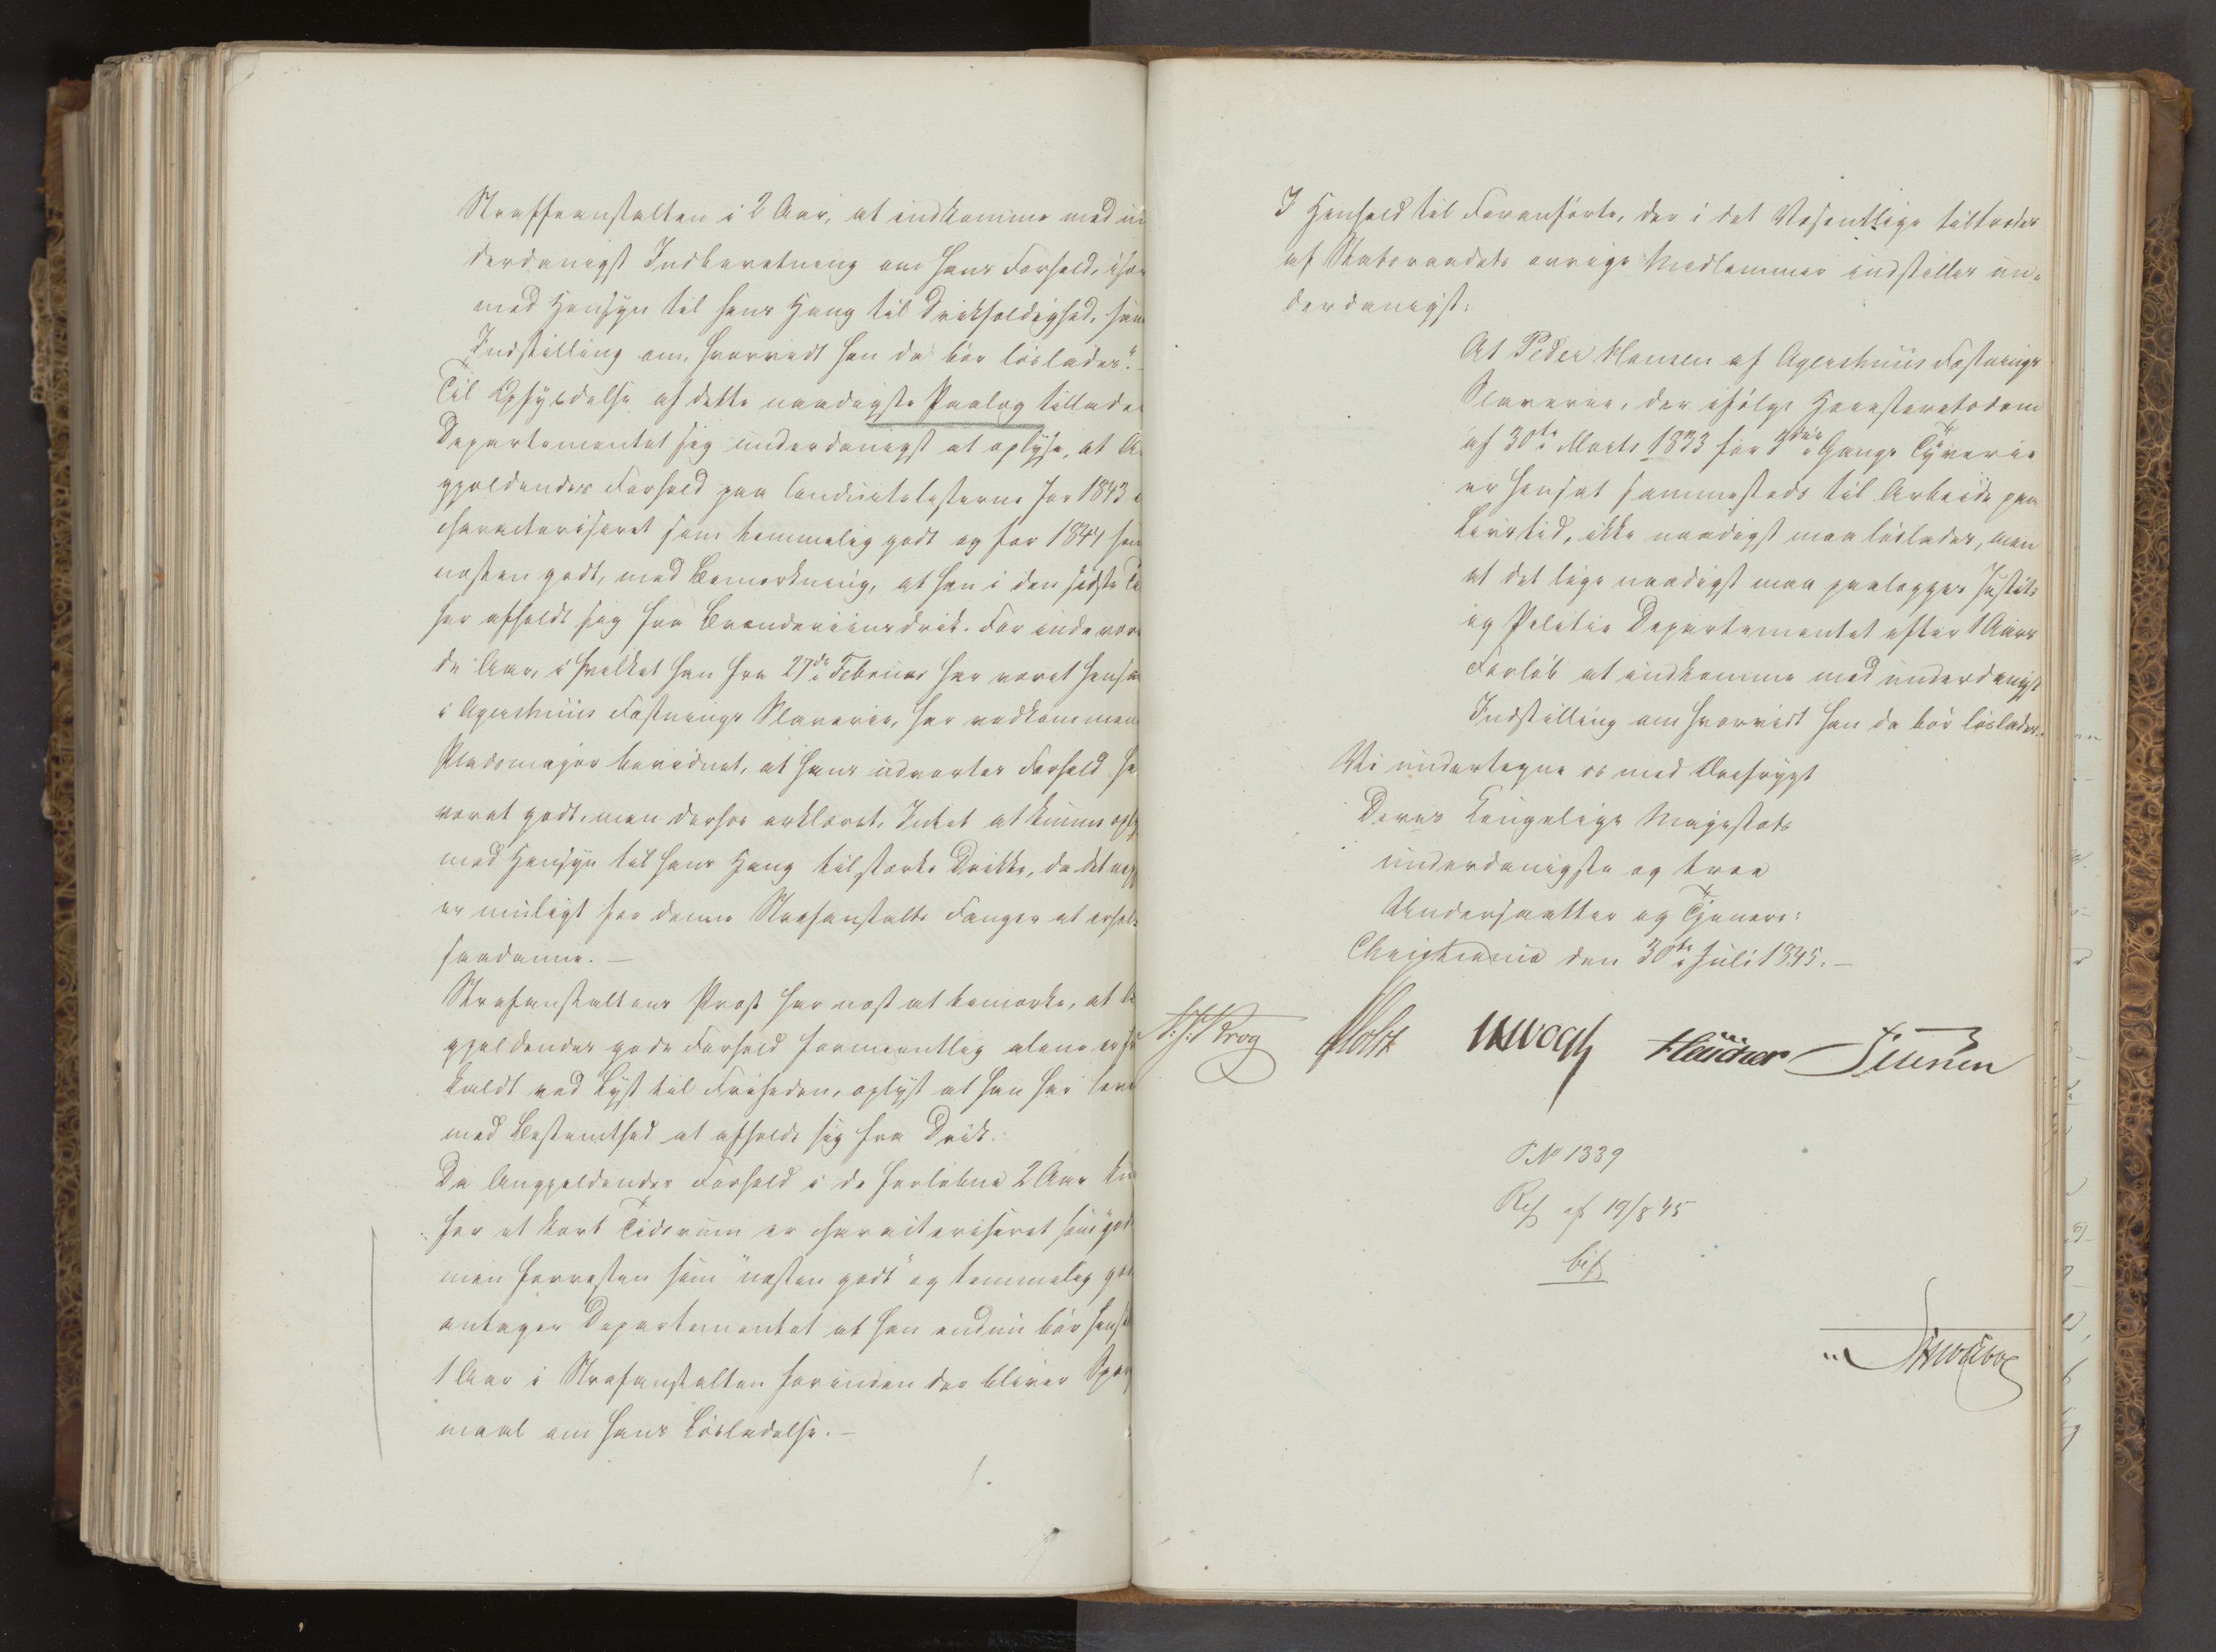 Straffeanstalten i 2 Aar, at indkomme med un
derdanigst Indberetning om hans Forhold, især
med Hensyn til hans Hang til Drikfældighed, samt
Indstilling om, hvorvidt han da bør løslades".
Til Opfyldelse af dette naadigste Paalæg tillader
Departementet sig underdanigst at oplyse, at A
ggjeldendes Forhold paa Conduitelisterne for 1843 e
characteriseret som temmelig godt og for 1844 som
næsten godt, med Bemærkning, at han i den sidste Ti
har afholdt sig fra Brændeviinsdrik. For indeværen
de Aar, i hvilket han fra 27de Februar har været hensa
i Agershuus Fæstnings Slaverie, har vedkommen
Pladsmajor bevidnet, at hans udvortes Forhold ha
været godt, men derhos erklæret, Intet at kunne oply
med Hensyn til hans Hang til stærke Drikke, da det nep
er muligt for denne Strafanstalts Fanger at erhol
saadanne. —
Strafanstaltens Præst har næst at bemærke, at A
gjeldendes gode Forhold formeentlig alene er fr
kaldt ved Lyst til Friheden, oplyst at han har lov
med Bestemthed at afholde sig fra Drik.
Da Anggjeldendes Forhold i de forløbne 2 Aar kun
for et kort Tidsrum er characteriseret som "god
men forresten som "næsten godt" og temmelig god
antager Departementet at han endnu bør hens
1 Aar i Strafanstalten forinden der bliver Spør
maal om hans Løsladelse. —
I Henhold til Foranførte, der i det Væsentlige tiltrædes
af Statsraadets øvrige Medlemmer indstilles un-
derdanigst:
At Peder Hansen af Agershuus Fæstnings
Slaverie, der ifølge Høiesteretsdom
af 30te Marts 1833 for 3die Gang Tyverie
er hensat sammesteds til Arbeide paa
Livstid, ikke naadigst maa løslades, men
at det lige naadigst maa paalægges Justits
og Politie Departementet efter 1 Aars
Forløb at indkomme med underdanigst
Indstilling om hvorvidt han da bør løslades.
Vi undertegne os med Ærefrygt
Deres Kongelige Majestæts
underdanigste og troe
Undersaatter og Tjenere:
Christiania den 30te Juli 1845. —
Krog Holst Vogt
P. No 1339
Res af 19/8 45
bif